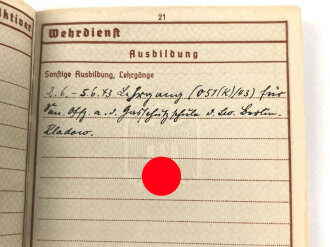 ktiver
21
Wehrdienst
Ausbildung
Sonstige Ausbildung, Lehrgänge
2.6. - 5.6.43 Lehrgang (051(K)/43) für
San. Offz. a. d. Gasschutzschule d. Lw. Berlin-
Kladow.